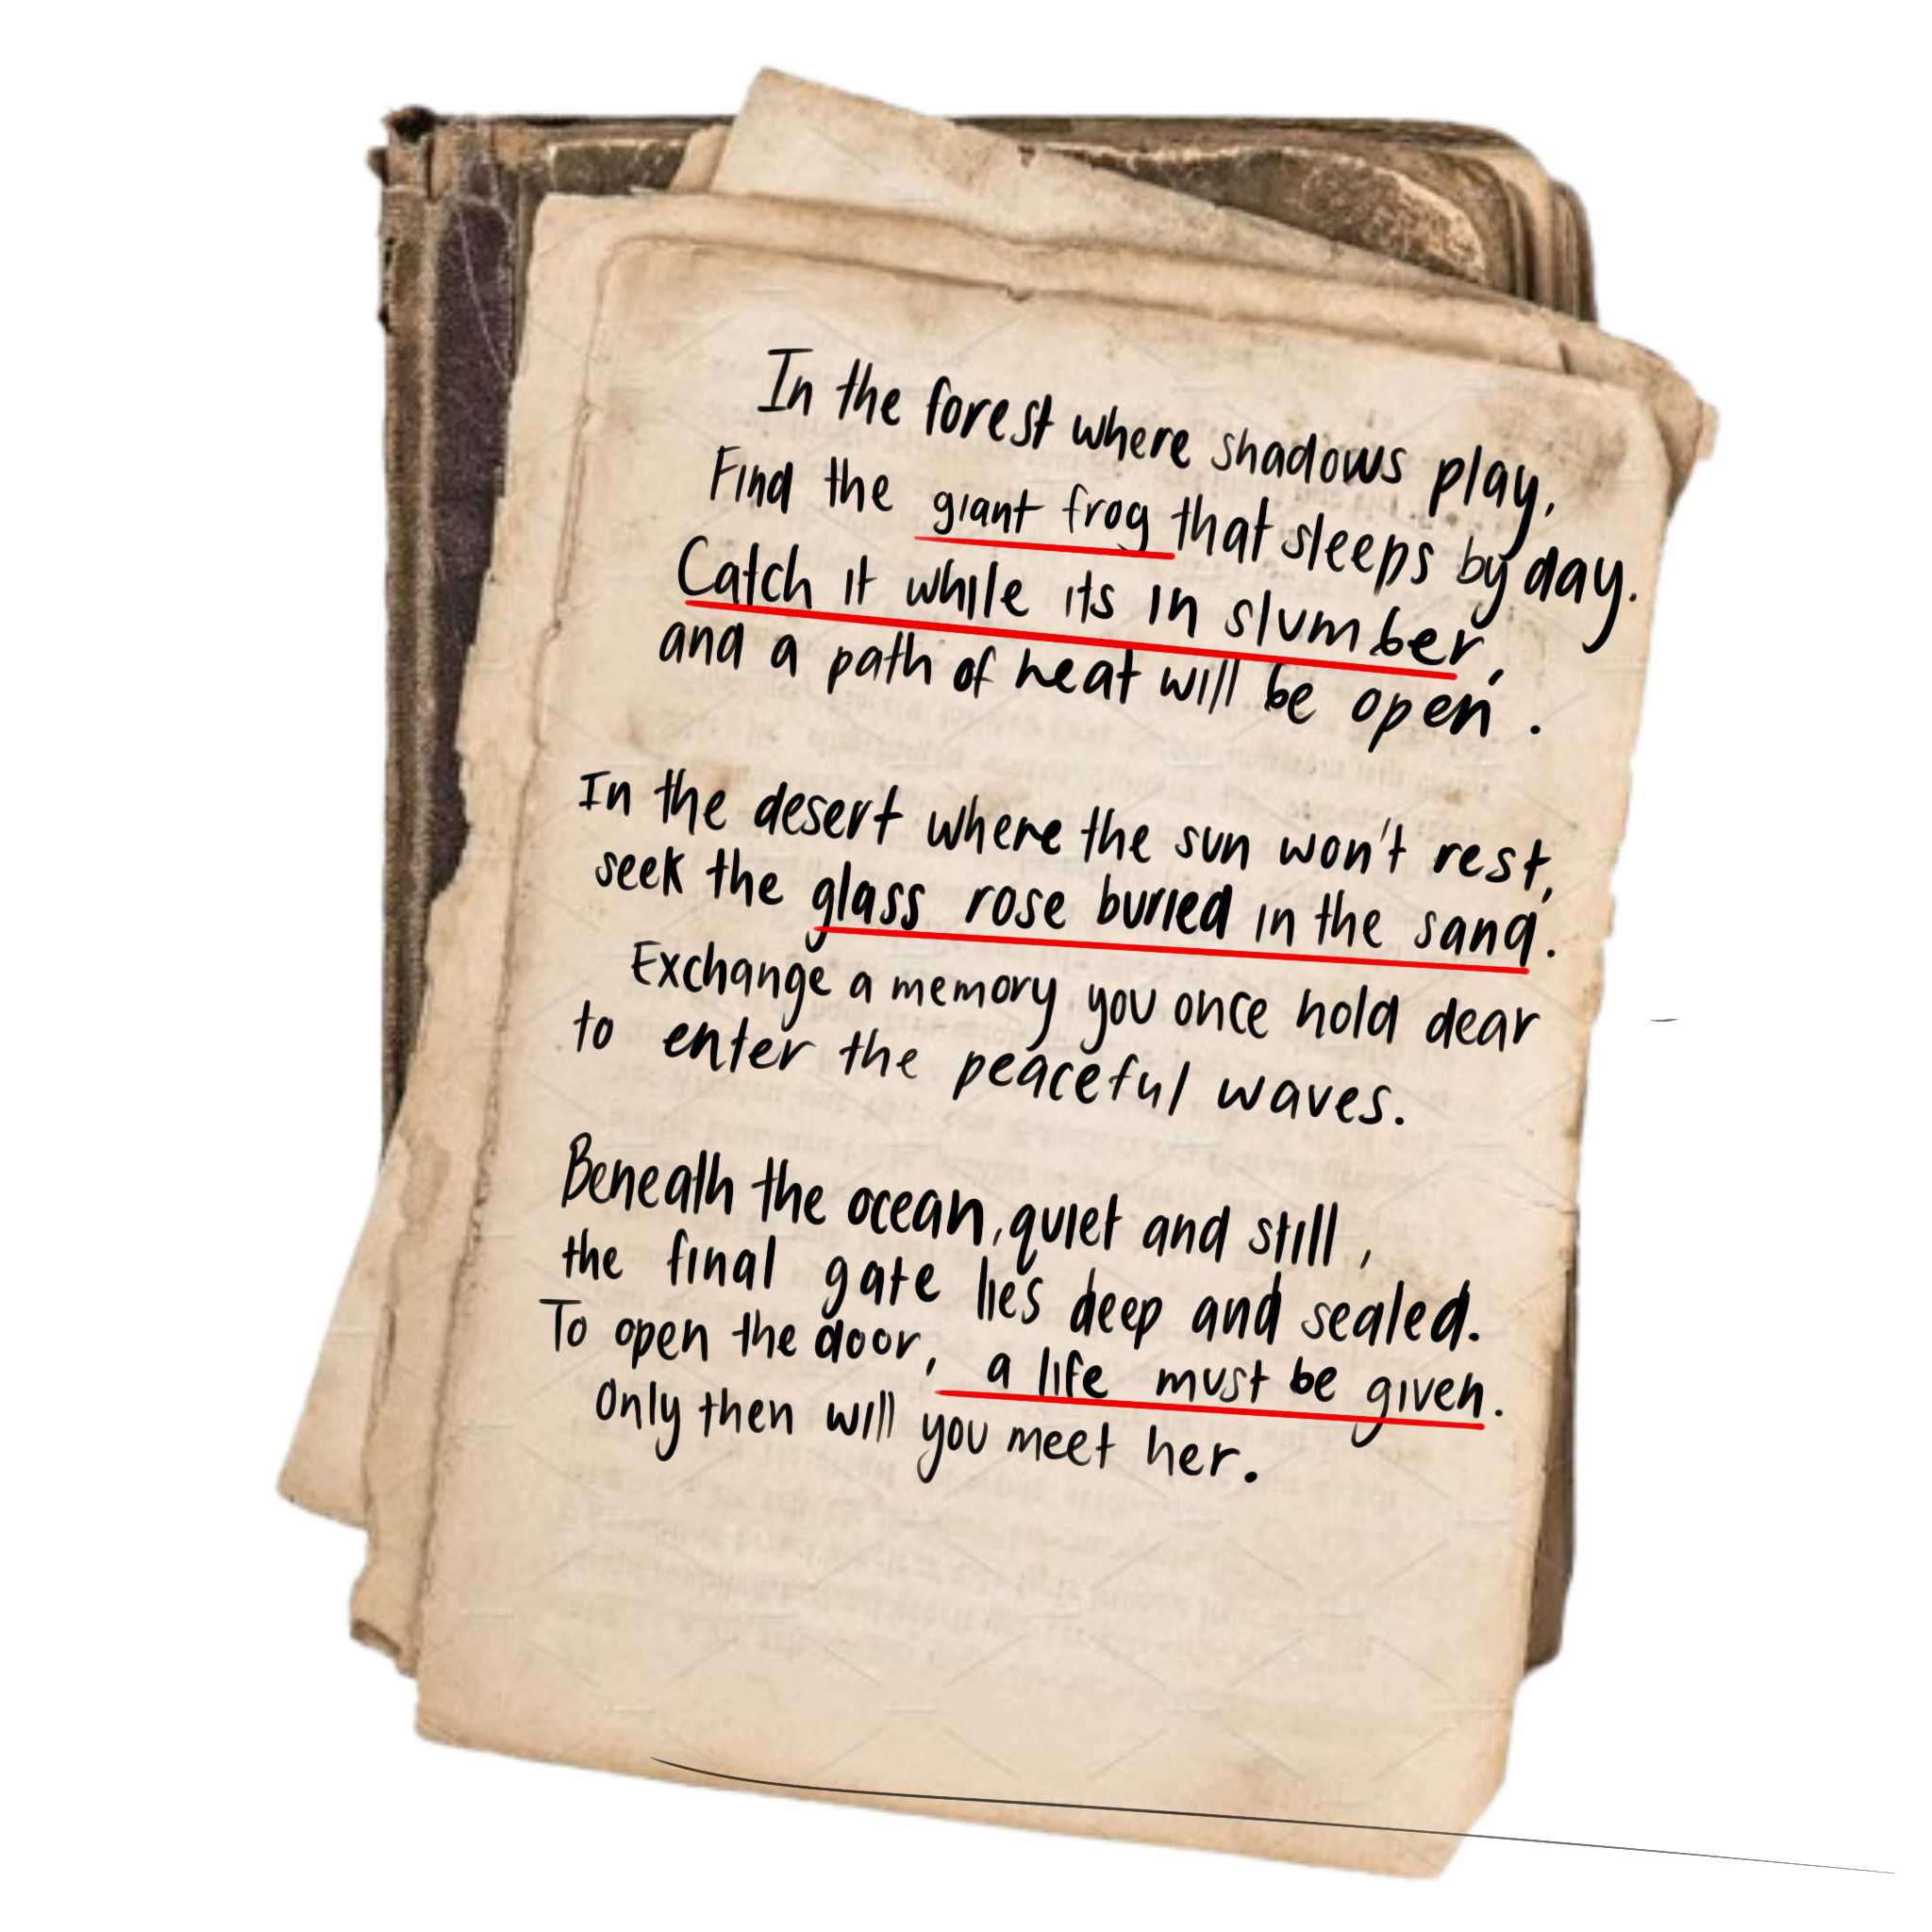 In the forest where shadows play,
Find the giant frog that sleeps by day.
Catch it while its in slumber,
and a path of heat will be open.
In the desert where the sun won't rest,
seek the glass rose buried in the sand.
Exchange a memory you once hold dear
to enter the peaceful waves.
Beneath the ocean, quiet and still,
the final gate lies deep and sealed.
To open the door, a life must be given.
Only then will you meet her.